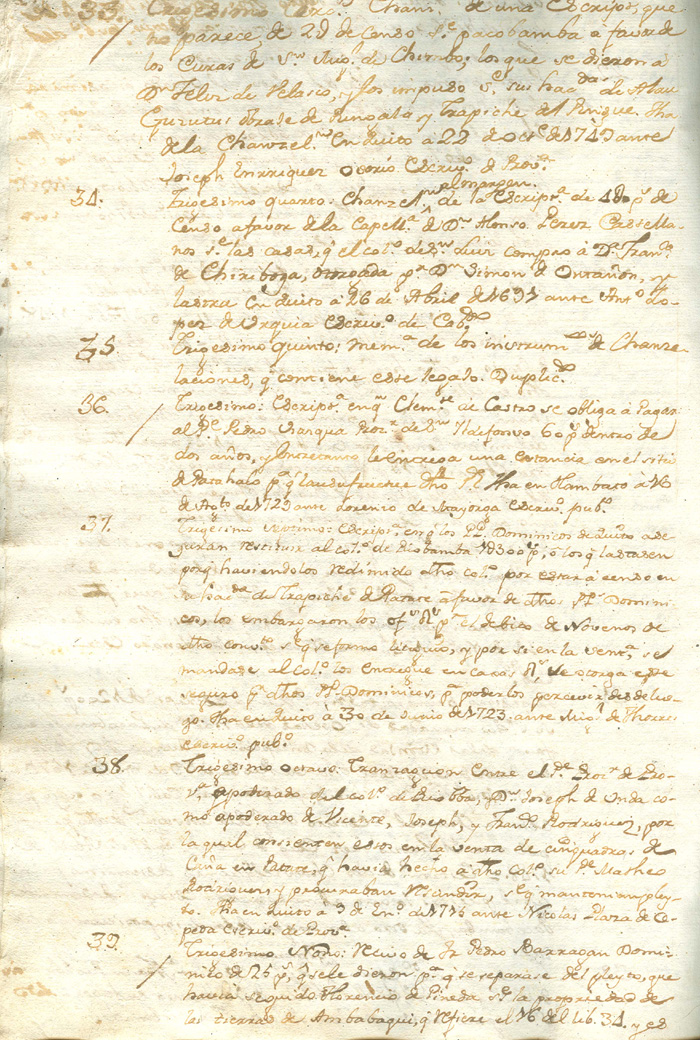 33. Trigesimo terc.º: Chanz.ⁿ de una Escript.ª que
no parece, de 2d de Censo s.ᵉ pacobamba a favor de
los Curas de S.ⁿ Mig.ˡ de Chimbo; los que se dieron a
D.ⁿ Felix de Velasco, y los impuso s.ᵉ sus haz.ᵈᵃˢ de Alau
Gurutus Obraje de Pungala y Trapiche del Pinique. Fha
de la Chanzel.ⁿ En Quito a 22 de Oct.ᵉ de 1749 ante
Joseph Enrriquez Osorio Escriv.º de Prov.ª
34. Trigesimo quarto: Chanzel.ⁿ al margen, de la Escript.ª de 480 p.ˢ de
Censo a favor de la Capell.ª de D.ⁿ Alonso Perez Castella-
nos s.ᵉ las casas, q̃ el col.º de S.ⁿ Luis compro à D.ⁿ Fran.º
de Chiriboga, otorgada p.ʳ D.ⁿ Simon de Ontañon, y
Lastra En Quito à 26 de Abril de 1691 ante Ant.º Lo-
pez de Urquia Escriv.º de Cab.ᵈᵒ
35. Trigesimo quinto: Mem.ª de los instrum.ᵗᵒˢ de Chanze-
laciones, q̃ contiene este legajo. Duplic.ᵈᵒ
36. Trigesimo: Escript.ª en q.ᵉ Clem.ᵗᵉ de Castro se obliga à Pagar
al P.ᵉ Pedro Proc.ʳ de S.ⁿ Ildefonso 60 p.ˢ dentro de
dos años, y entretanto le entriega una estancia en el sitio
de Patahalo p.ª q̃ la usufructue dho P.ᵉ Fha en Hambato à 16
de Ag.ᵗᵒ de 1723 ante Lorenzo de Mayorga Escriv.º pub.ᶜᵒ
37. Trigesimo septimo: Escript.ª en q̃ los PP. Dominicos de Quito ase-
guran restituir al col.º de Riobamba 1300 p.ˢ, ò los q̃ lastasen
porq̃ haviendolos redimido dho col.º por estar à censo en
la haz.ᵈᵃ de Trapiche de Patate à favor de dhos PP. Domini-
cos, los embargaron los of.ˢ R.ˢ p.ʳ el debito de Novenos de
dho conv.ᵗᵒ s.ᵉ q̃ se formo litigio, y por si en la sent.ª se
mandase al col.º los enterase en caxas R.ˢ, se otorga este
seguro p.ʳ dhos PP. Dominicos, p.ª poderlos percevir desde lue-
go. Fha en Quito à 30 de Junio de 1723 ante Mig.ˡ de Thorres
escriv.º pub.ᶜᵒ
38. Trigesimo Octavo: Tranzaçion Entre el P.ᵉ Proc.ʳ de Pro-
v.ª apoderado del col.º de Rio Bba, y D.ⁿ Joseph de Unda co-
mo apoderado de Vicente, Joseph, y Fran.º Rodriguez, por
la qual consienten estos en la venta de cinq̃ quadras de
Caña en Patate, q̃ havia hecho à dho col.º su P.ᵉ Matheo
Rodriguez, y procuraban resindir, s.ᵉ q̃ mantenian pley-
to. Fha en Quito à 9 de En.º de 1715 ante Nicolas Plaza de Ce-
peda Escriv.º de Prov.ª
39. Trigesimo Nono: Recivo de Fr. Pedro Barragan Domi-
nico de 25 p.ˢ q̃ se le dieron p.ª q̃ se separase del pleyto, que
havia seguido Florencio de Pineda s.ᵉ la propriedad de
las tierras de Ambabaqui, q̃ refiere el 16 del lib. 34. y es